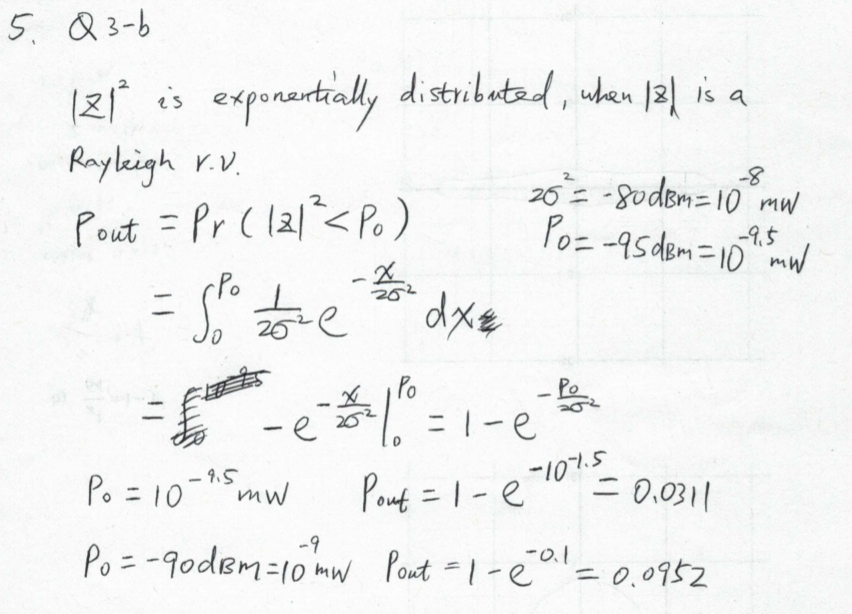 5. Q 3-b
|z|² is exponentially distributed, when |z| is a
Rayleigh r.v.
2σ² = -80dBm = 10^-8 mW
Pout = Pr ( |z|² < P₀ )
P₀ = -95dBm = 10^-9.5 mW
= ∫₀^P₀ 1/2σ² e^-x/2σ² dx
= -e^-x/2σ² |₀^P₀ = 1 - e^-P₀/2σ²
P₀ = 10^-9.5 mW Pout = 1 - e^-10^-1.5 = 0.0311
P₀ = -90dBm = 10^-9 mW Pout = 1 - e^-0.1 = 0.0952